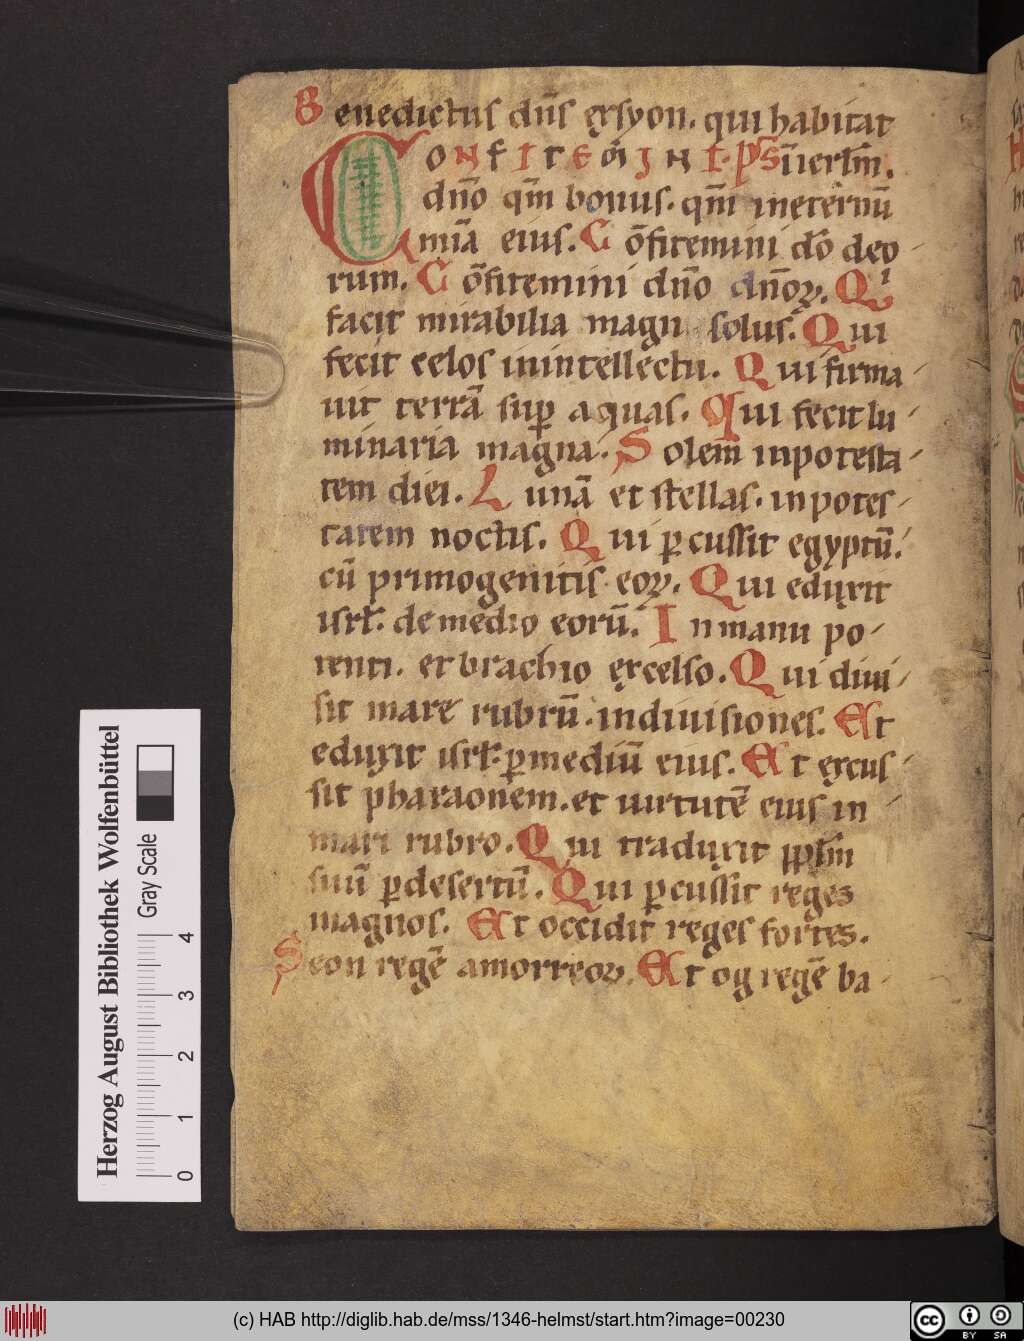 Benedictus dn̄s exsyon. qui habitat
CONFITEMINI. ps̄ īierłm.
dn̄o qm̄ bonus. qm̄ ineternū
mīa eius. Cōfitemini do̅ deo
rum. Cōfitemini dn̄o dn̄oꝝ. Qi
facit mirabilia magn solus. Qui
fecit celos inintellectu. Qui firma
uit terrā suꝑ aquas. Qui fecit lu
minaria magna. Solem inpotesta
tem diei. Lunā et stellas. inpotes
tatem noctis. Qui ꝑcussit egyptū.
cū primogenitis eoꝝ. Qui eduxit
isrł. demedio eorū. Inmanu po
tenti. et brachio excelso. Qui diui
sit mare rubrū. indiuisiones. Et
eduxit isrł. ꝑmediū eius. Et excus
sit pharaonem. et uirtutē eius in
mari rubro. Qui traduxit ppłm
suū ꝑdesertū. Qui ꝑcussit reges
magnos. Et occidit reges fortes.
Seon regē amorreoꝝ. Et og regē ba
Herzog August Bibliothek Wolfenbüttel
Gray Scale
0 1 2 3 4
(c) HAB http://diglib.hab.de/mss/1346-helmst/start.htm?image=00230
cc BY SA